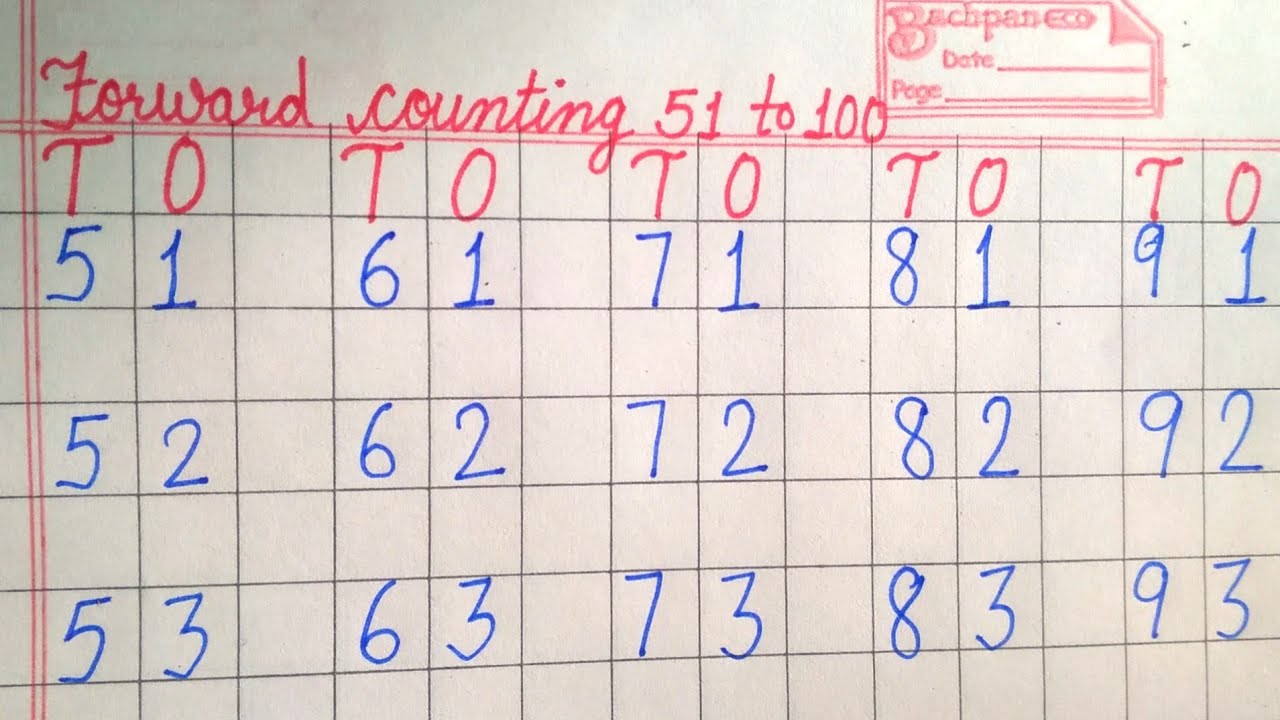 Bachpan ECO
Date
Page
Forward counting 51 to 100
T O T O T O T O T O
5 1 6 1 7 1 8 1 9 1
5 2 6 2 7 2 8 2 9 2
5 3 6 3 7 3 8 3 9 3